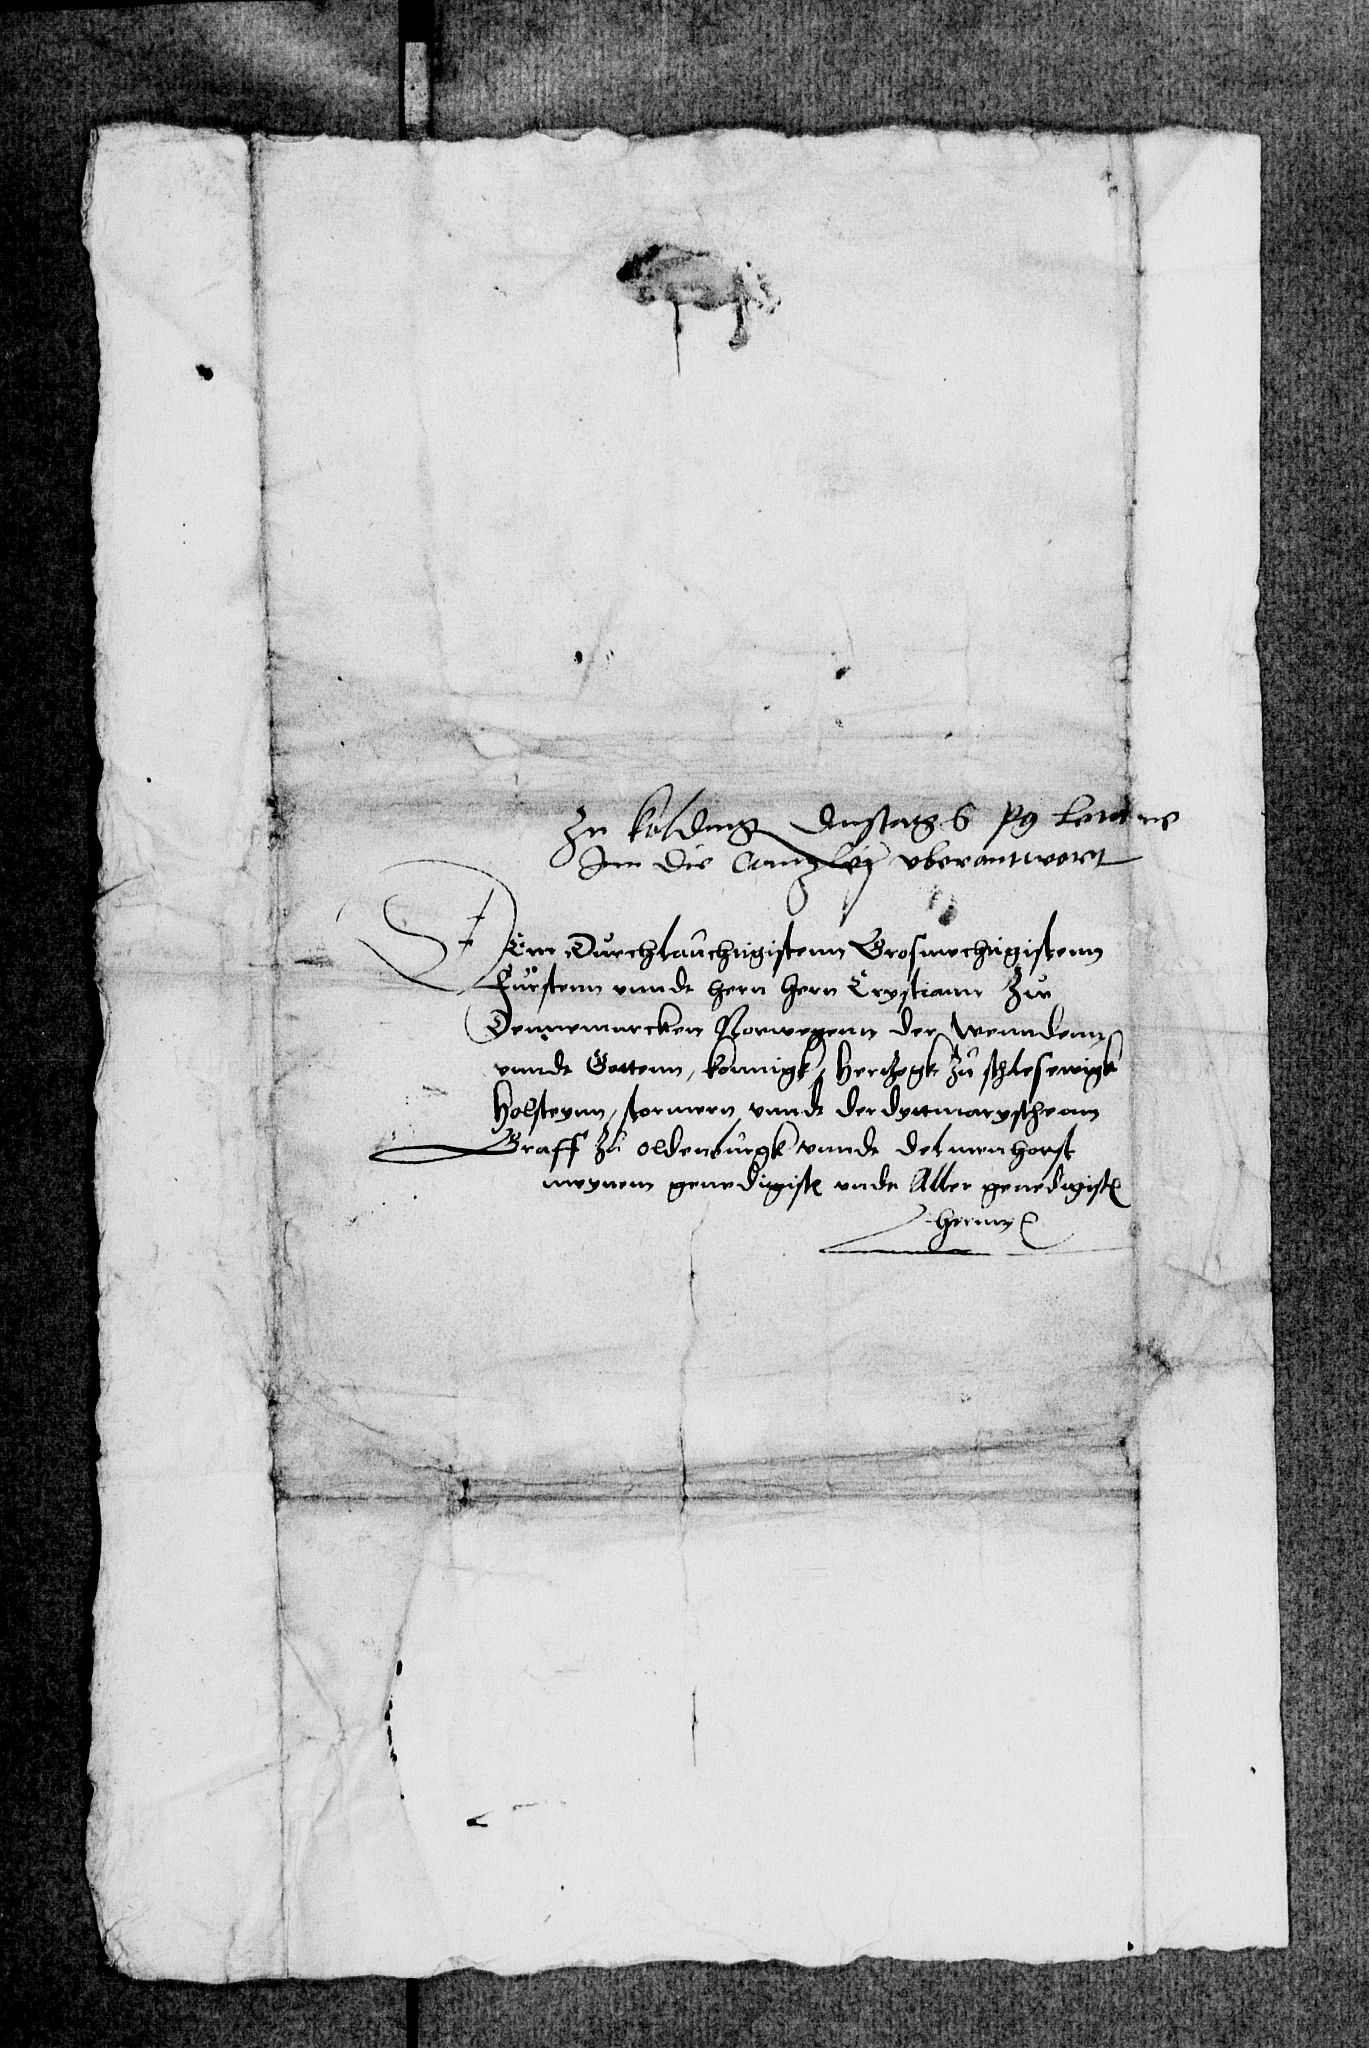 Zu Kolding Dinstag
Inn die Cantzley vberantwort
Dem Durchlauchtigistenn Grosmechtigistenn
Furstenn vnnde hern hern Crystiann Zue
Dennemarcken Norwegenn der Wenndenn
vnnde Gottenn, konnigk, Herczogk zu schleswigk
Holsteynn, stormern vnnde der dyttmaryschenn
Graff zu oldenburgk vnnde delmenhorst
meynem genedigist vnde Aller genedigist
herrn